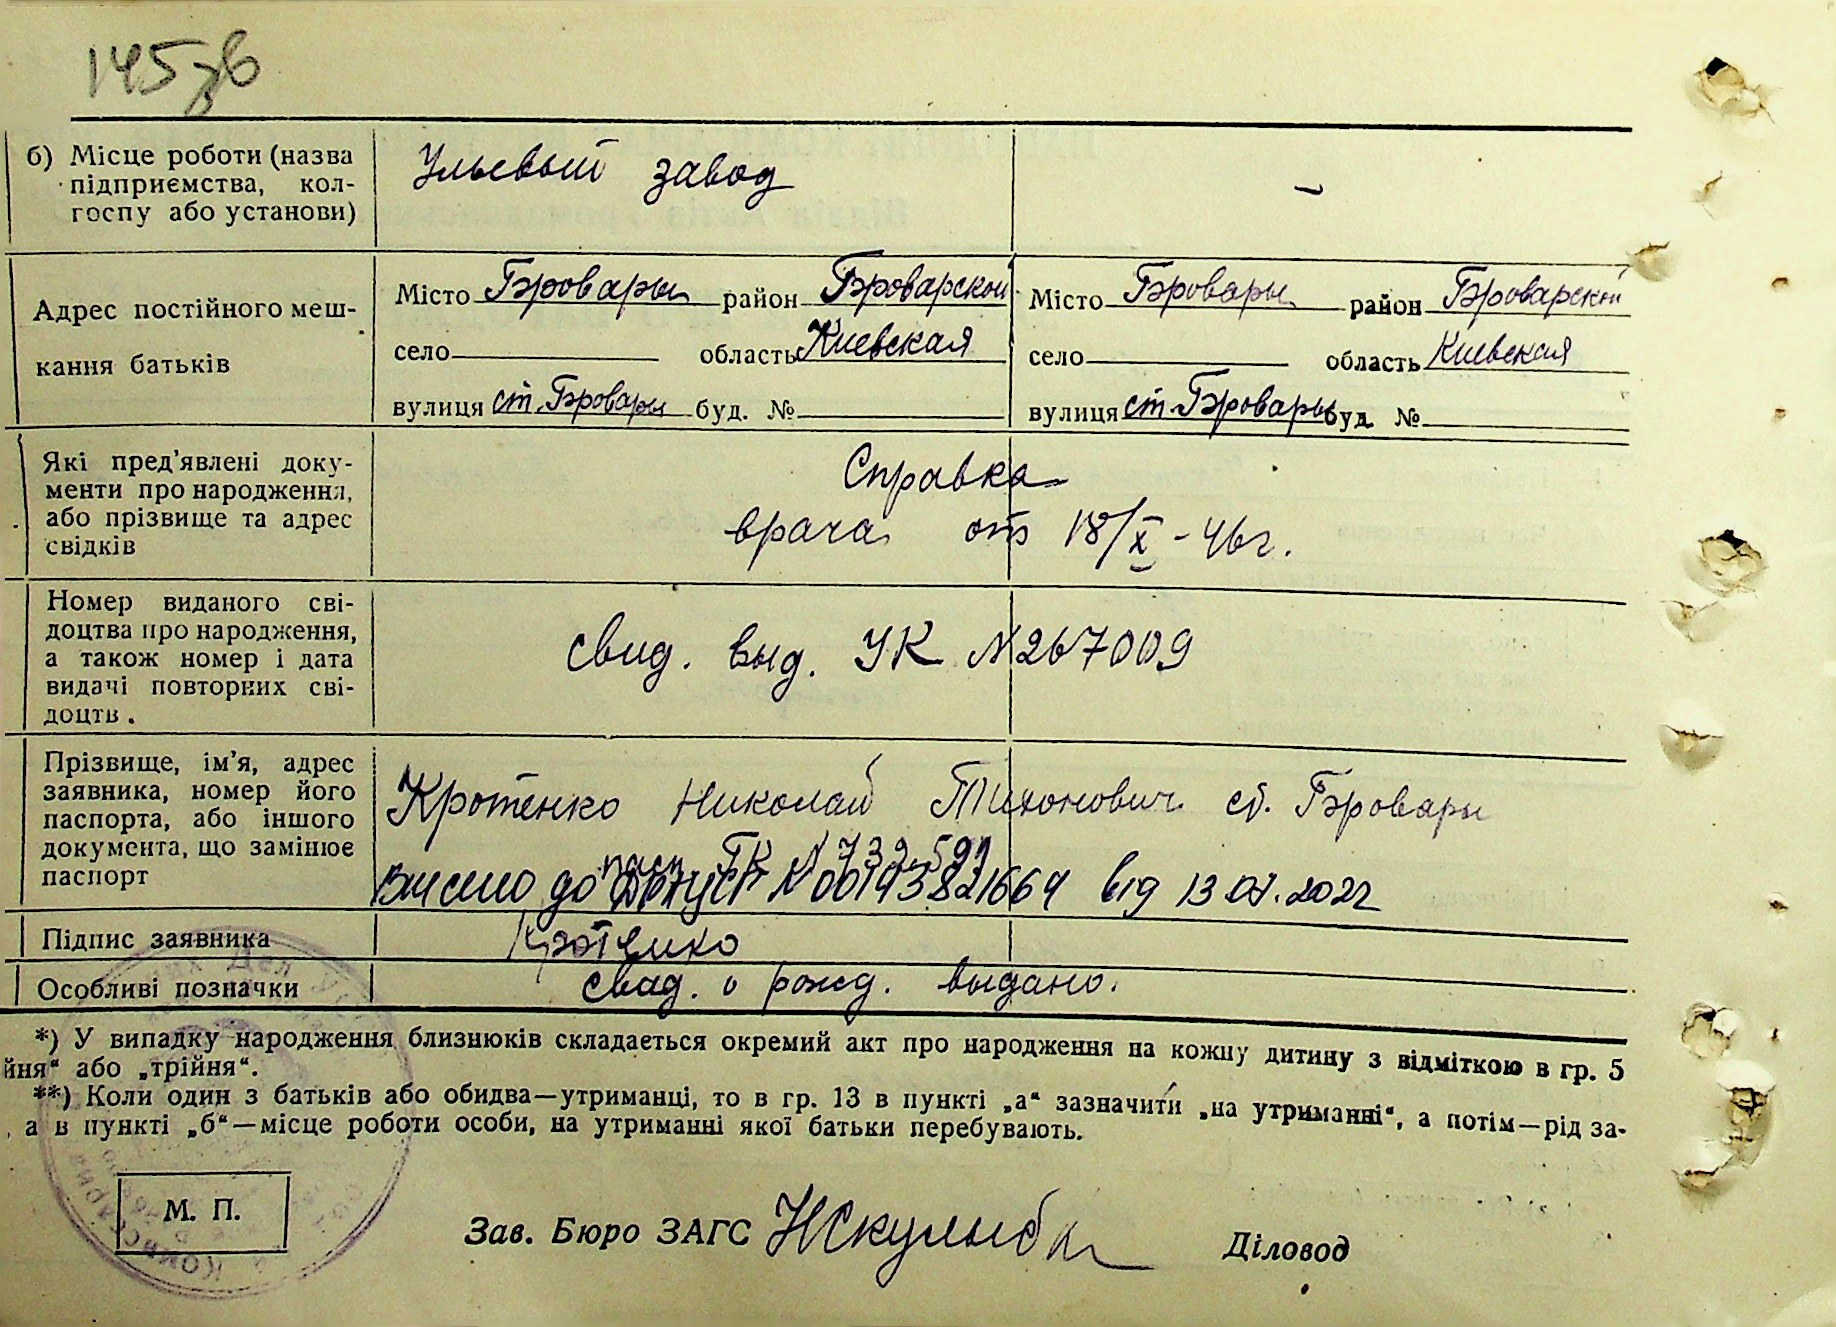 145 зв
б) Місце роботи (назва
підприємства, кол-
госпу або установи)
Ульевый завод
–
Адрес постійного меш-
кання батьків
Місто Бровары район Броварской
село область Киевская
вулиця ст. Бровары буд. №
Місто Бровары район Броварской
село область Киевская
вулиця ст. Бровары буд. №
Які пред'явлені доку-
менти про народження,
або прізвище та адрес
свідків
Справка
врача от 18/X - 46г.
Номер виданого сві-
доцтва про народження,
а також номер і дата
видачі повторних сві-
доцтв.
свид. выд. УК №267009
Прізвище, ім'я, адрес
заявника, номер його
паспорта, або іншого
документа, що замінює
паспорт
Кротенко Николай Тихонович ст. Бровары
пасп
внесено до № 00143821664 від 13.07.2022
Підпис заявника
Кротенко
Особливі позначки
свид. о рожд. выдано.
*) У випадку народження близнюків складається окремий акт про народження на кожну дитину з відміткою в гр. 5
йня" або „трійня".
**) Коли один з батьків або обидва—утриманці, то в гр. 13 в пункті „а" зазначити „на утриманні", а потім—рід за-
, а в пункті „б"—місце роботи особи, на утриманні якої батьки перебувають.
М. П.
Зав. Бюро ЗАГС
Діловод